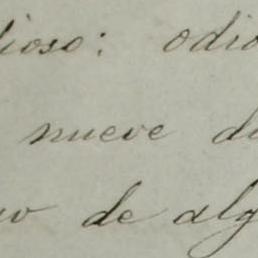 lioso: odio
nueve d
de alg